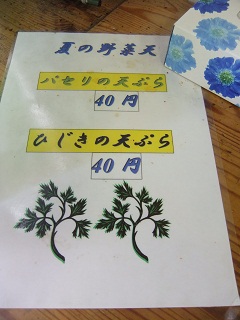 夏の野菜天
パセリの天ぷら
40円
ひじきの天ぷら
40円